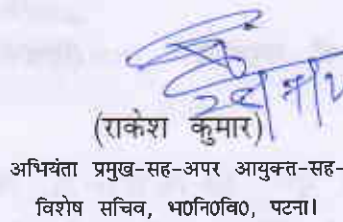 (राकेश कुमार)
अभियंता प्रमुख-सह-अपर आयुक्त-सह-
विशेष सचिव, भ०नि०वि०, पटना।